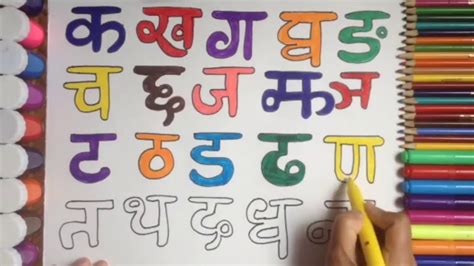 क ख ग घ ङ
च छ ज झ ञ
ट ठ ड ढ ण
त थ द ध